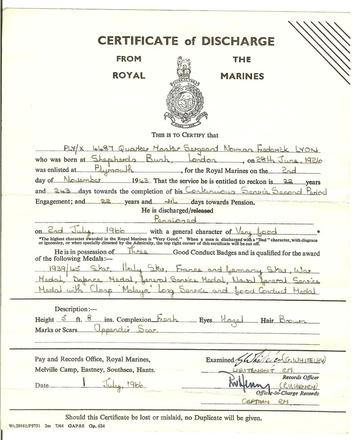 CERTIFICATE of DISCHARGE
FROM THE
ROYAL MARINES
THIS IS TO CERTIFY that
PLY/X 4487 Quarter Master Sergeant Norman Frederick LYON
who was born at Shepherds Bush, London, on 28th June, 1926
was enlisted at Plymouth, for the Royal Marines on the 2nd
day of November 1943 That the service he is entitled to reckon is 22 years
and 243 days towards the completion of his Continuous Service Second Period
Engagement; and 22 years and -NIL days towards Pension.
He is discharged/released
Pensioned
on 2nd July, 1966 with a general character of Very good *
*The highest character awarded in the Royal Marines is "Very Good." When a man is discharged with a "Bad" character, with disgrace
or ignominy, or when specially directed by the Admiralty, the top right corner of this certificate will be cut off.
He is in possession of Three Good Conduct Badges and is qualified for the award
of the following Medals:—
1939/45 Star, Italy Star, France and Germany Star, War
Medal, Defence Medal, General Service Medal, Naval General Service
Medal with Clasp "Malaya" Long Service and Good Conduct Medal
DESCRIPTION:—
Height 5 ft. 8 ins. Complexion Fresh Eyes Hazel Hair Brown
Marks or Scars Appendix Scar.
Pay and Records Office, Royal Marines,
Melville Camp, Eastney, Southsea, Hants.
Date 1 July, 1966
Examined (G. WHITELEY)
LIEUTENANT RM.
Records Officer
Officer-in-Charge Records
CAPTAIN RM.
Should this Certificate be lost or mislaid, no Duplicate will be given.